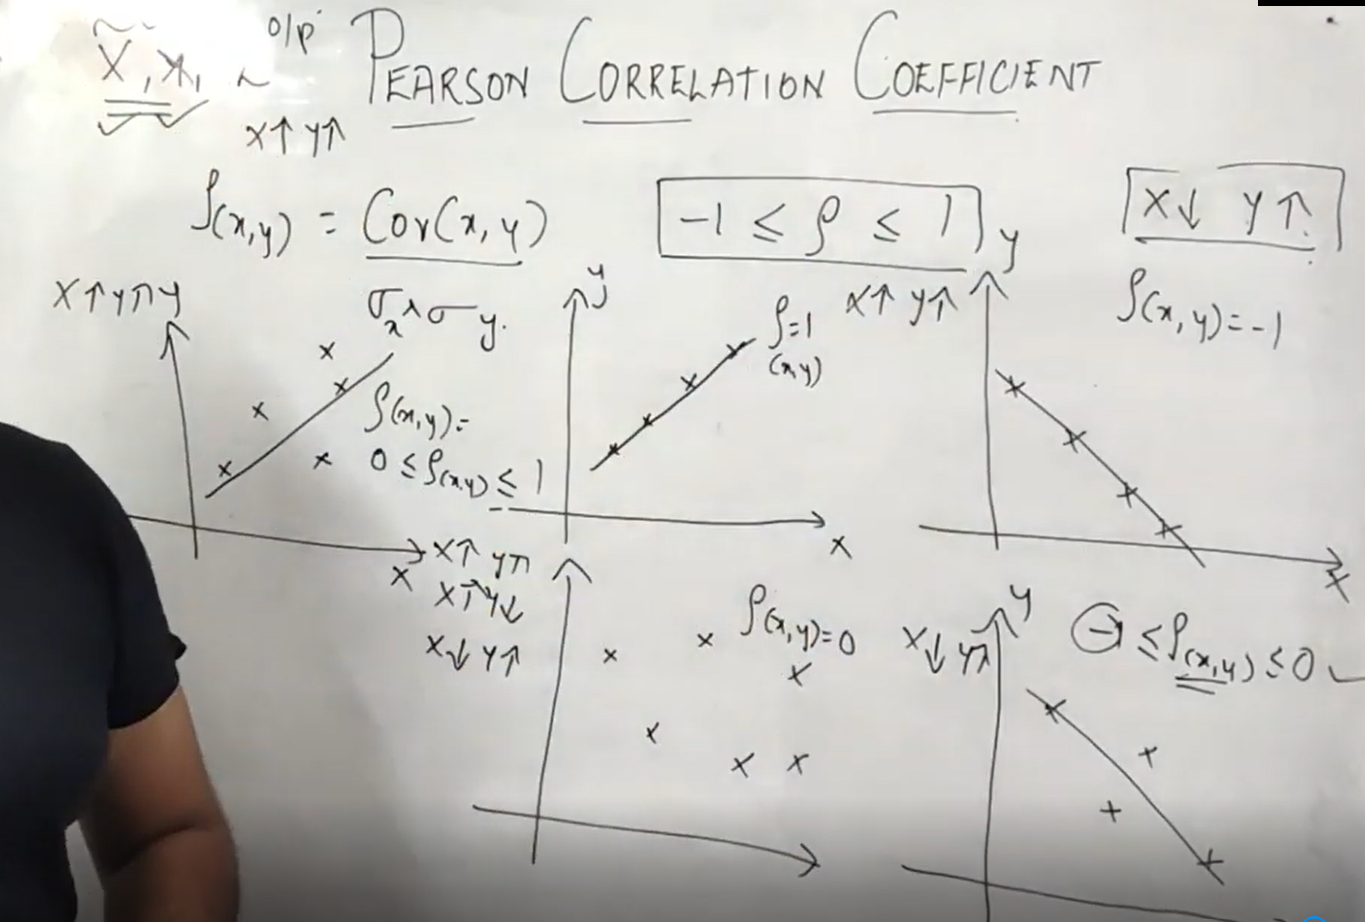 o/p
X, X₁ ~ PEARSON CORRELATION COEFFICIENT
X↑ Y↑
ρ(x,y) = Cov(x,y)
σx × σy.
-1 ≤ ρ ≤ 1
X↓ Y↑
X↑ Y↑ y
ρ(x,y)=
0 ≤ ρ(x,y) ≤ 1
x
y
ρ=1
(x,y)
x
X↑ Y↑
y
ρ(x,y)=-1
x
X↑ Y↑
X↑ Y↓
X↓ Y↑
ρ(x,y)=0
X↓ Y↑
y
-1 ≤ ρ(x,y) ≤ 0